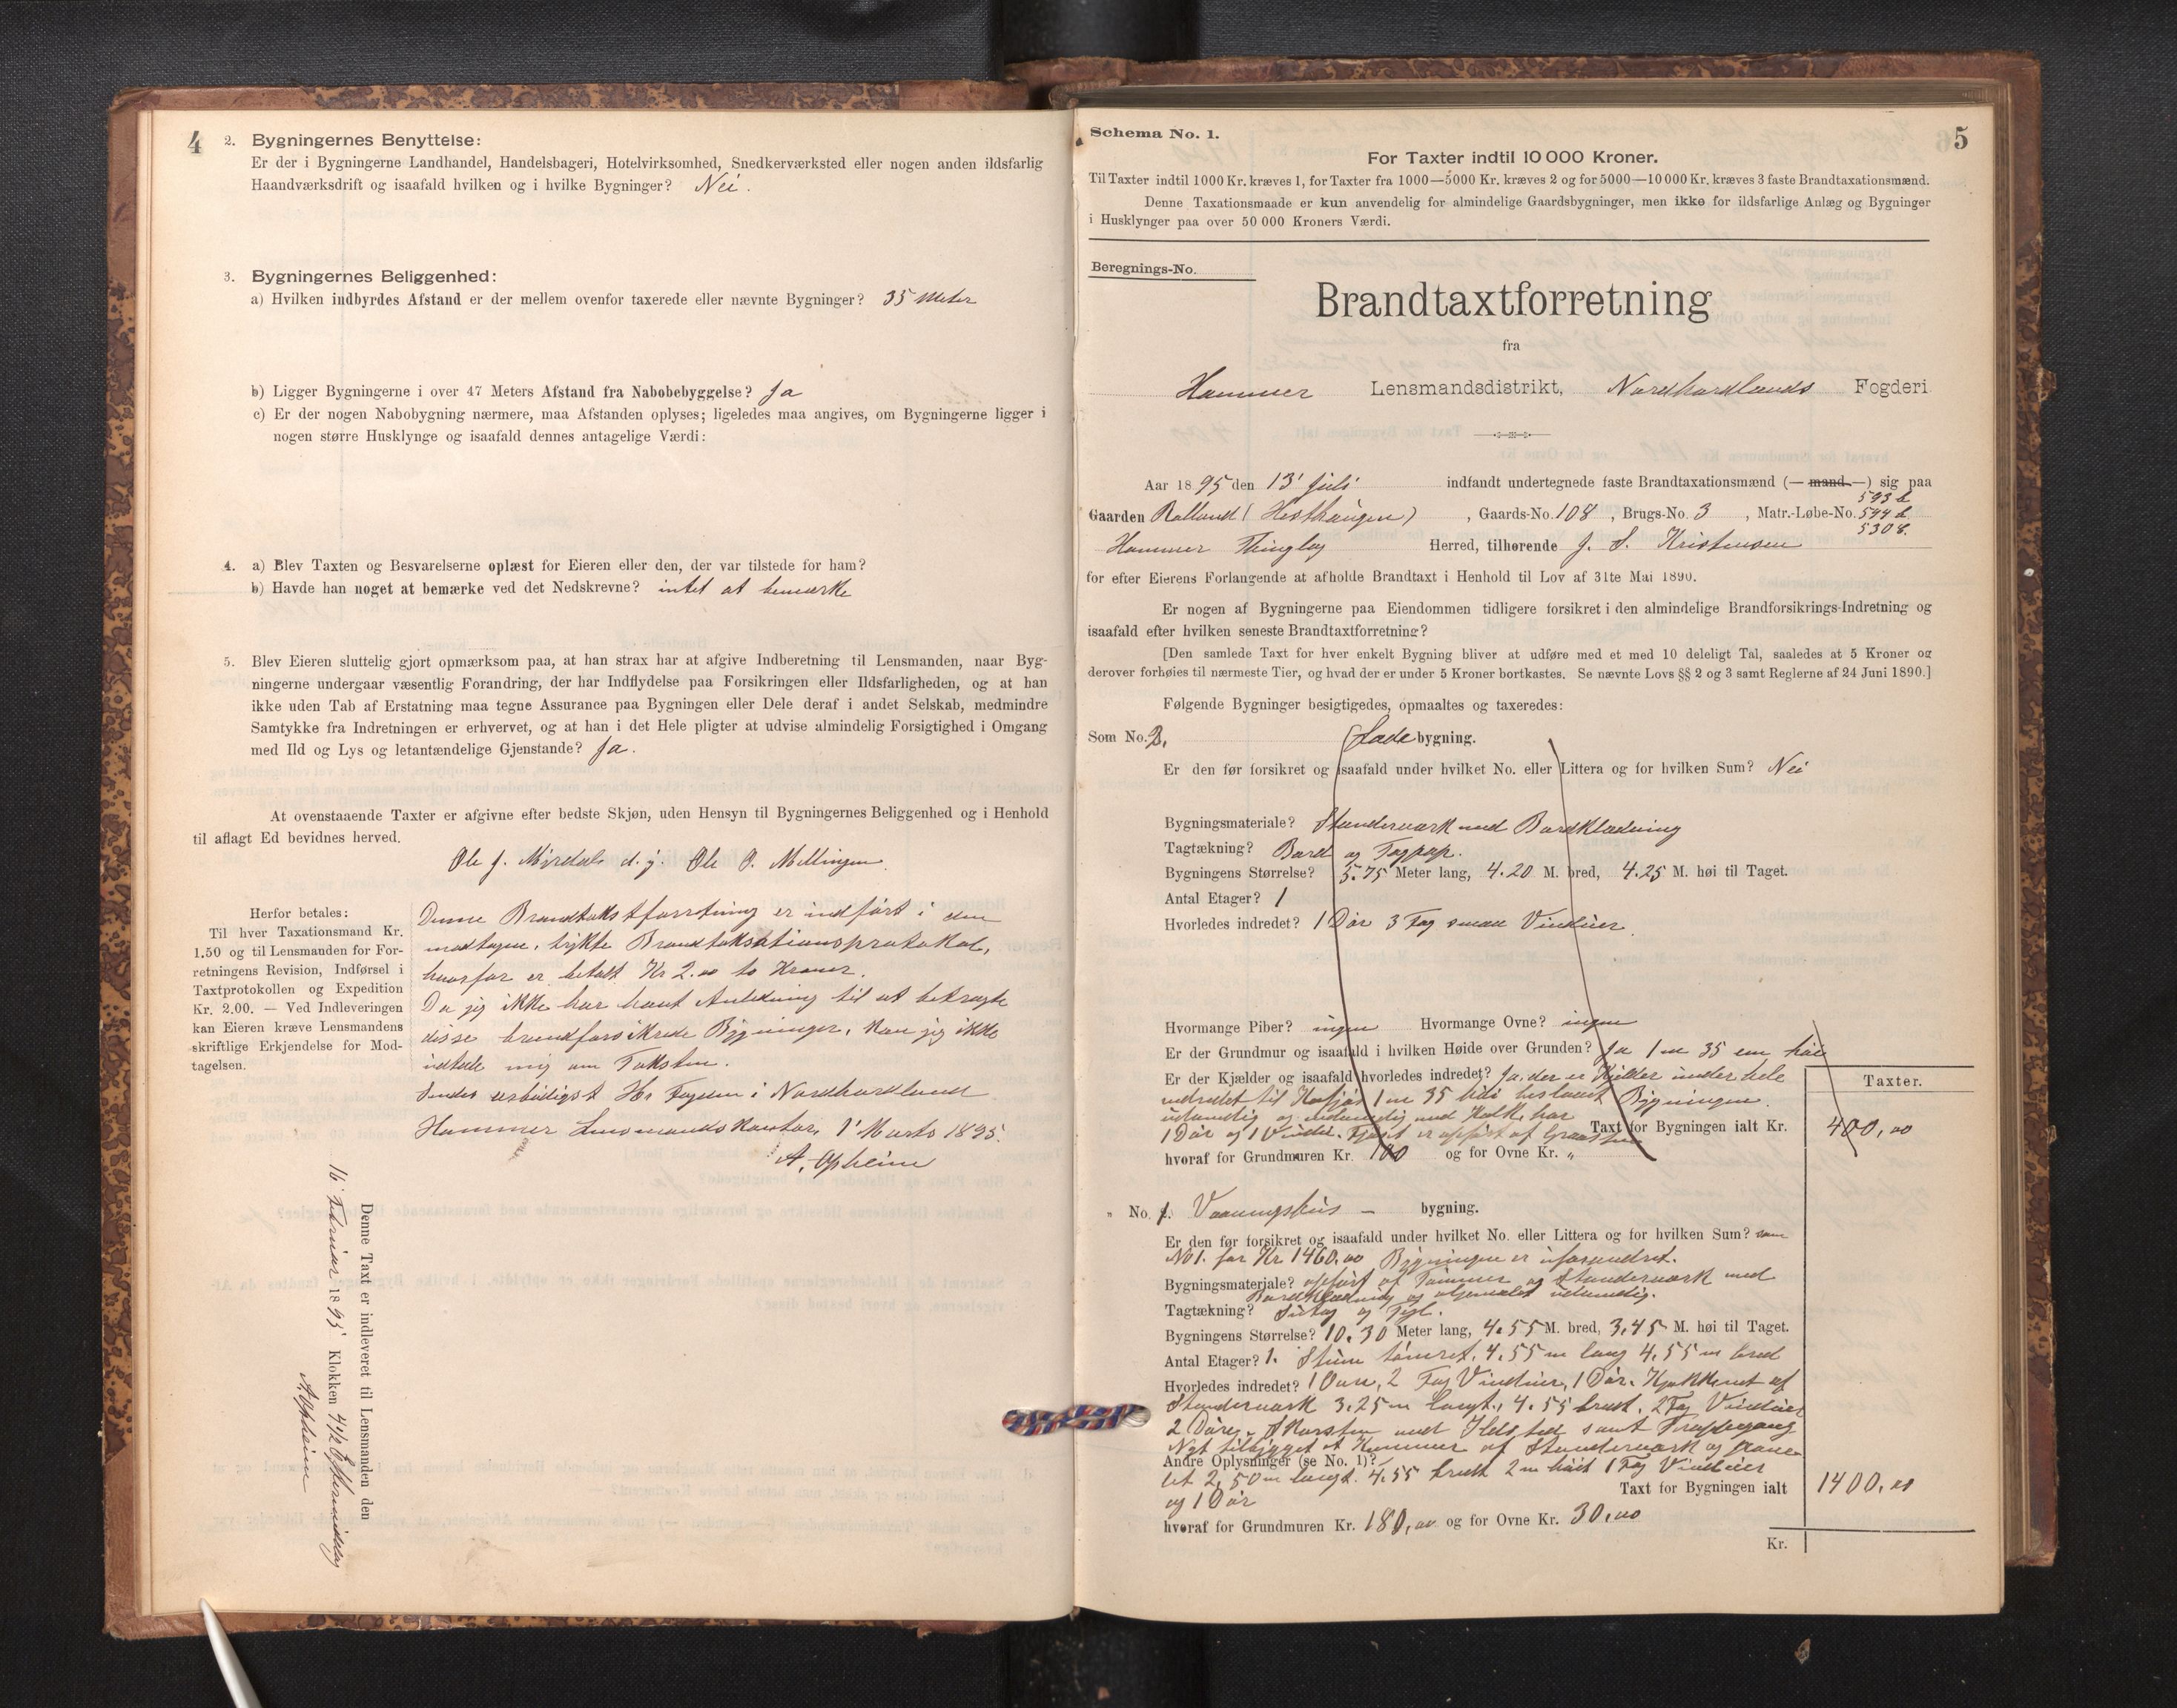 4
2. Bygningernes Benyttelse:
Er der i Bygningerne Landhandel, Handelsbageri, Hotelvirksomhed, Snedkerværksted eller nogen anden ildsfarlig
Haandværksdrift og isaafald hvilken og i hvilke Bygninger? Nei.
3. Bygningernes Beliggenhed:
a) Hvilken indbyrdes Afstand er der mellem ovenfor taxerede eller nævnte Bygninger? 35 Meter
b) Ligger Bygningerne i over 47 Meters Afstand fra Nabobebyggelse? Ja
c) Er der nogen Nabobygning nærmere, maa Afstanden oplyses; ligeledes maa angives, om Bygningerne ligger i
nogen større Husklynge og isaafald dennes antagelige Værdi:
4. a) Blev Taxten og Besvarelserne oplæst for Eieren eller den, der var tilstede for ham?
b) Havde han noget at bemærke ved det Nedskrevne? intet at bemærke
5. Blev Eieren sluttelig gjort opmærksom paa, at han strax har at afgive Indberetning til Lensmanden, naar Byg-
ningerne undergaar væsentlig Forandring, der har Indflydelse paa Forsikringen eller Ildsfarligheden, og at han
ikke uden Tab af Erstatning maa tegne Assurance paa Bygningen eller Dele deraf i andet Selskab, medmindre
Samtykke fra Indretningen er erhvervet, og at han i det Hele pligter at udvise almindelig Forsigtighed i Omgang
med Ild og Lys og letantændelige Gjenstande? Ja.
At ovenstaaende Taxter er afgivne efter bedste Skjøn, uden Hensyn til Bygningernes Beliggenhed og i Henhold
til aflagt Ed bevidnes herved.
Ole J. Mjrdals d. y. Ole O. Mellingen
Herfor betales:
Til hver Taxationsmand Kr.
1.50 og til Lensmanden for For-
retningens Revision, Indførsel i
Taxtprotokollen og Expedition
Kr. 2.00. — Ved Indleveringen
kan Eieren kræve Lensmandens
skriftlige Erkjendelse for Mod-
tagelsen.
Denne Brandtakstforretning er indført i den
modtagne, trykte Brandtaksationsprotokol,
hvorfor er betalt Kr 2.00 to Kroner.
Da jeg ikke har havt Anledning til at betragte
disse brandforsikrede Bygninger, kan jeg ikke
udtale mig om Taksten.
Sendes ærbødigst Hr Fogden i Nordhordland
Hammer Lensmandskontor, 1' Marts 1895.
A. Opheim
Denne Taxt er indleveret til Lensmanden den
16' Februar 1895 Klokken 4 1/2 Eftermiddag
A. Opheim
Schema No. 1.
5
For Taxter indtil 10 000 Kroner.
Til Taxter indtil 1000 Kr. kræves 1, for Taxter fra 1000—5000 Kr. kræves 2 og for 5000—10000 Kr. kræves 3 faste Brandtaxationsmænd.
Denne Taxationsmaade er kun anvendelig for almindelige Gaardsbygninger, men ikke for ildsfarlige Anlæg og Bygninger
i Husklynger paa over 50 000 Kroners Værdi.
Beregnings-No.
Brandtaxtforretning
fra
Hammer Lensmandsdistrikt, Nordhordlands Fogderi
Aar 1895 den 13' Juli indfandt undertegnede faste Brandtaxationsmænd (— mand —) sig paa
593 b
Gaarden Rolland (Hesthaugen), Gaards-No. 108, Brugs-No. 3, Matr.-Løbe-No. 544 b
530 8.
Hammer Thinglag Herred, tilhørende J. S. Kristensen
for efter Eierens Forlangende at afholde Brandtaxt i Henhold til Lov af 31te Mai 1890.
Er nogen af Bygningerne paa Eiendommen tidligere forsikret i den almindelige Brandforsikrings-Indretning og
isaafald efter hvilken seneste Brandtaxtforretning?
[Den samlede Taxt for hver enkelt Bygning bliver at udføre med et med 10 deleligt Tal, saaledes at 5 Kroner og
derover forhøies til nærmeste Tier, og hvad der er under 5 Kroner bortkastes. Se nævnte Lovs §§ 2 og 3 samt Reglerne af 24 Juni 1890.]
Følgende Bygninger besigtigedes, opmaaltes og taxeredes:
Som No. 2. Ladebygning.
Er den før forsikret og isaafald under hvilket No. eller Littera og for hvilken Sum? Nei
Bygningsmateriale? Standerværk med Bordklædning
Tagtækning? Bord og Tagpap.
Bygningens Størrelse? 5.75 Meter lang, 4.20 M. bred, 4.25 M. høi til Taget.
Antal Etager? 1
Hvorledes indredet? 1 Dør 3 Fag smaa Vinduer.
Hvormange Piber? ingen Hvormange Ovne? ingen
Er der Grundmur og isaafald i hvilken Høide over Grunden? Ja 1 m 35 cm høi
Er der Kjælder og isaafald hvorledes indredet? Ja, der er Kjelder under hele
indredet til Kofjøs 1 m 35 høi Bygningen.
udvendig og indvendig med Kalk, har
1 Dør og 1 Vindu. Fjøset er opført af Graasten
Taxter.
Taxt for Bygningen ialt Kr. 400,00
hvoraf for Grundmuren Kr. 100 og for Ovne Kr. "
" No. 1. Vaaningshus — bygning.
Er den før forsikret og isaafald under hvilket No. eller Littera og for hvilken Sum? som
No 1. for Kr 1460.00 Bygningen er uforandret.
Bygningsmateriale? opført af Tømmer og Standerværk med
Bordklædning og oljemalet udvendig.
Tagtækning? Sutag og Tegl.
Bygningens Størrelse? 10.30 Meter lang, 4.55 M. bred, 3.45 M. høi til Taget.
Antal Etager? 1. Stuen tømret, 4.55 m lang 4.55 m bred
Hvorledes indredet? 1 Ovn, 2 Fag Vinduer, 1 Dør. Kjøkkenet af
Standerværk 3.25 m langt, 4.55 bredt. 2 Fag Vinduer
2 Døre. Skorsten med Ildsted samt Trappegang
Nyt tilbygget et Kammer af Standerværk og pane-
Andre Oplysninger (se No. 1)?
let 2,50 m langt. 4.55 bredt 2 m høit 1 Fag Vinduer
og 1 Dør
Taxt for Bygningen ialt 1400,00
hvoraf for Grundmuren Kr. 180,00 og for Ovne Kr. 30,00
Kr.